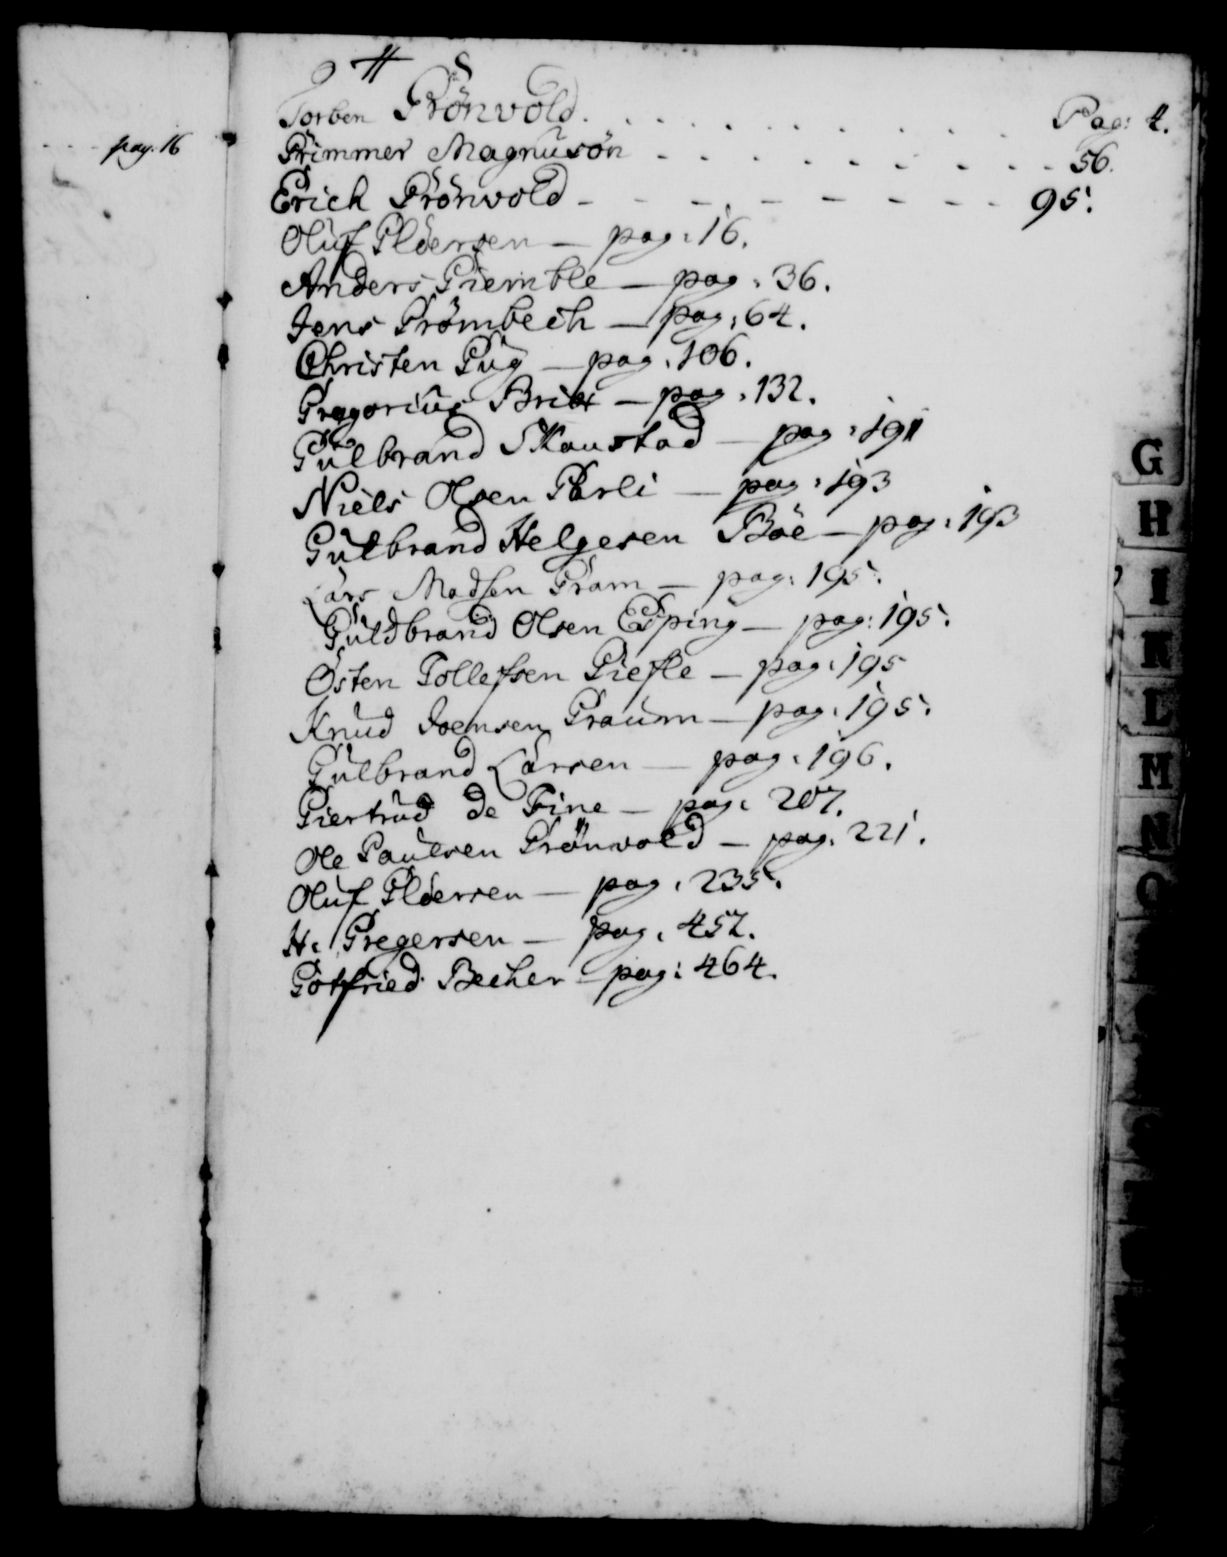 pag. 16
Torben Grönvold. . . . . . . . . . . . Pag: 4.
Grimmer Magnusøn - - - - - - - - - 56.
Erich Grönvold - - - - - - - - - 95.
Oluf Gloersen — pag: 16.
Anders Giemble — pag: 36.
Jens Grømbech — pag: 64.
Christen Gug — pag: 106.
Gregorius Brix — pag: 132.
Gulbrand Skaustad — pag: 191
Niels Olsen Garli — pag: 193
Gulbrand Helgesen Böe — pag: 193
Lars Madsen Gram — pag: 195.
Guldbrand Olsen Esping — pag: 195.
Østen Tollefsen Giefle — pag: 195
Knud Joensen Graum — pag: 195.
Gulbrand Larsen — pag: 196.
Giertrud de Fine — pag: 207.
Ole Paulsen Grönvold — pag: 221.
Oluf Gloersen — pag: 235.
H: Gregersen — pag: 457.
Gotfried Becher - pag: 464.
G
H
I
K
L
M
N
O